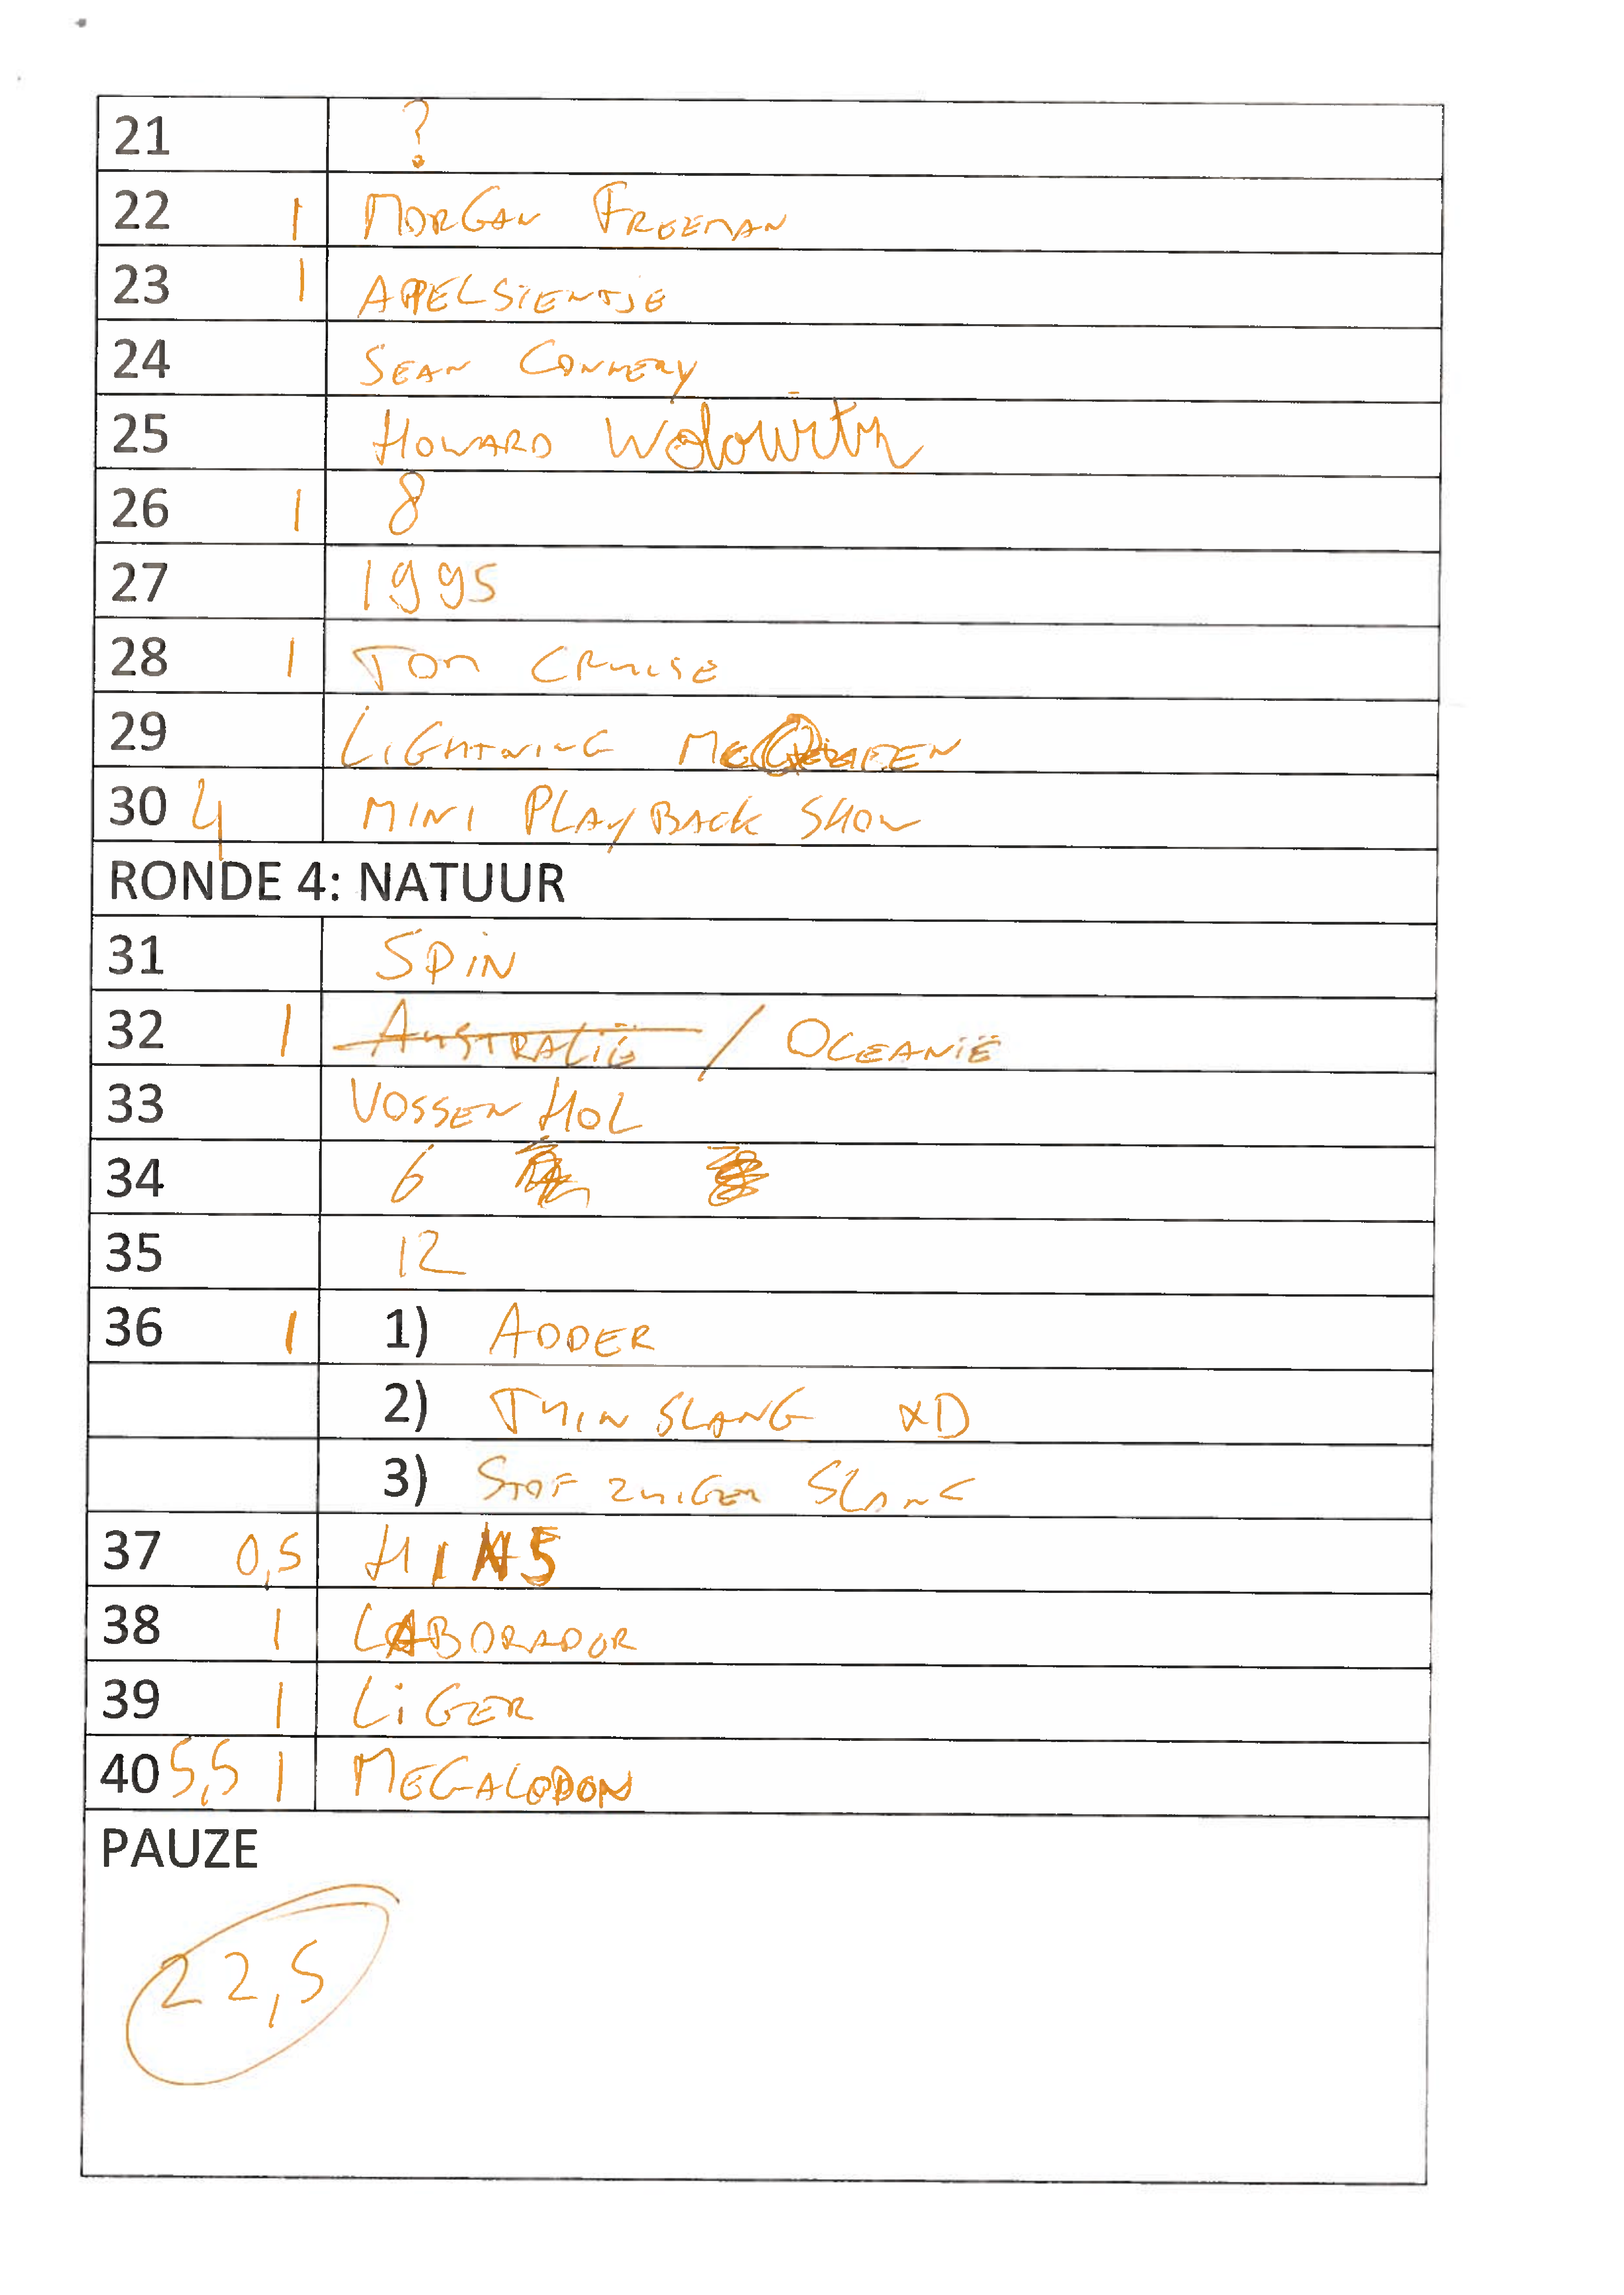 21 ?
22 1 MORGAN FREEMAN
23 1 APPELSIENTJE
24 SEAN CONNERY
25 HOWARD Wolowitz
26 1 8
27 1995
28 1 TOM CRUISE
29 LIGHTNING
30 4 MINI PLAYBACK SHOW
RONDE 4: NATUUR
31 SPIN
32 1 AUSTRALIË / OCEANIË
33 VOSSEN HOL
34 6
35 12
36 1 1) ADDER
2) TUIN SLANG XD
3) STOF ZUIGER SLANG
37 0,5 H1N5
38 1 LABORADOR
39 1 LIGER
40 5,5 1 MEGALODON
PAUZE
22,5